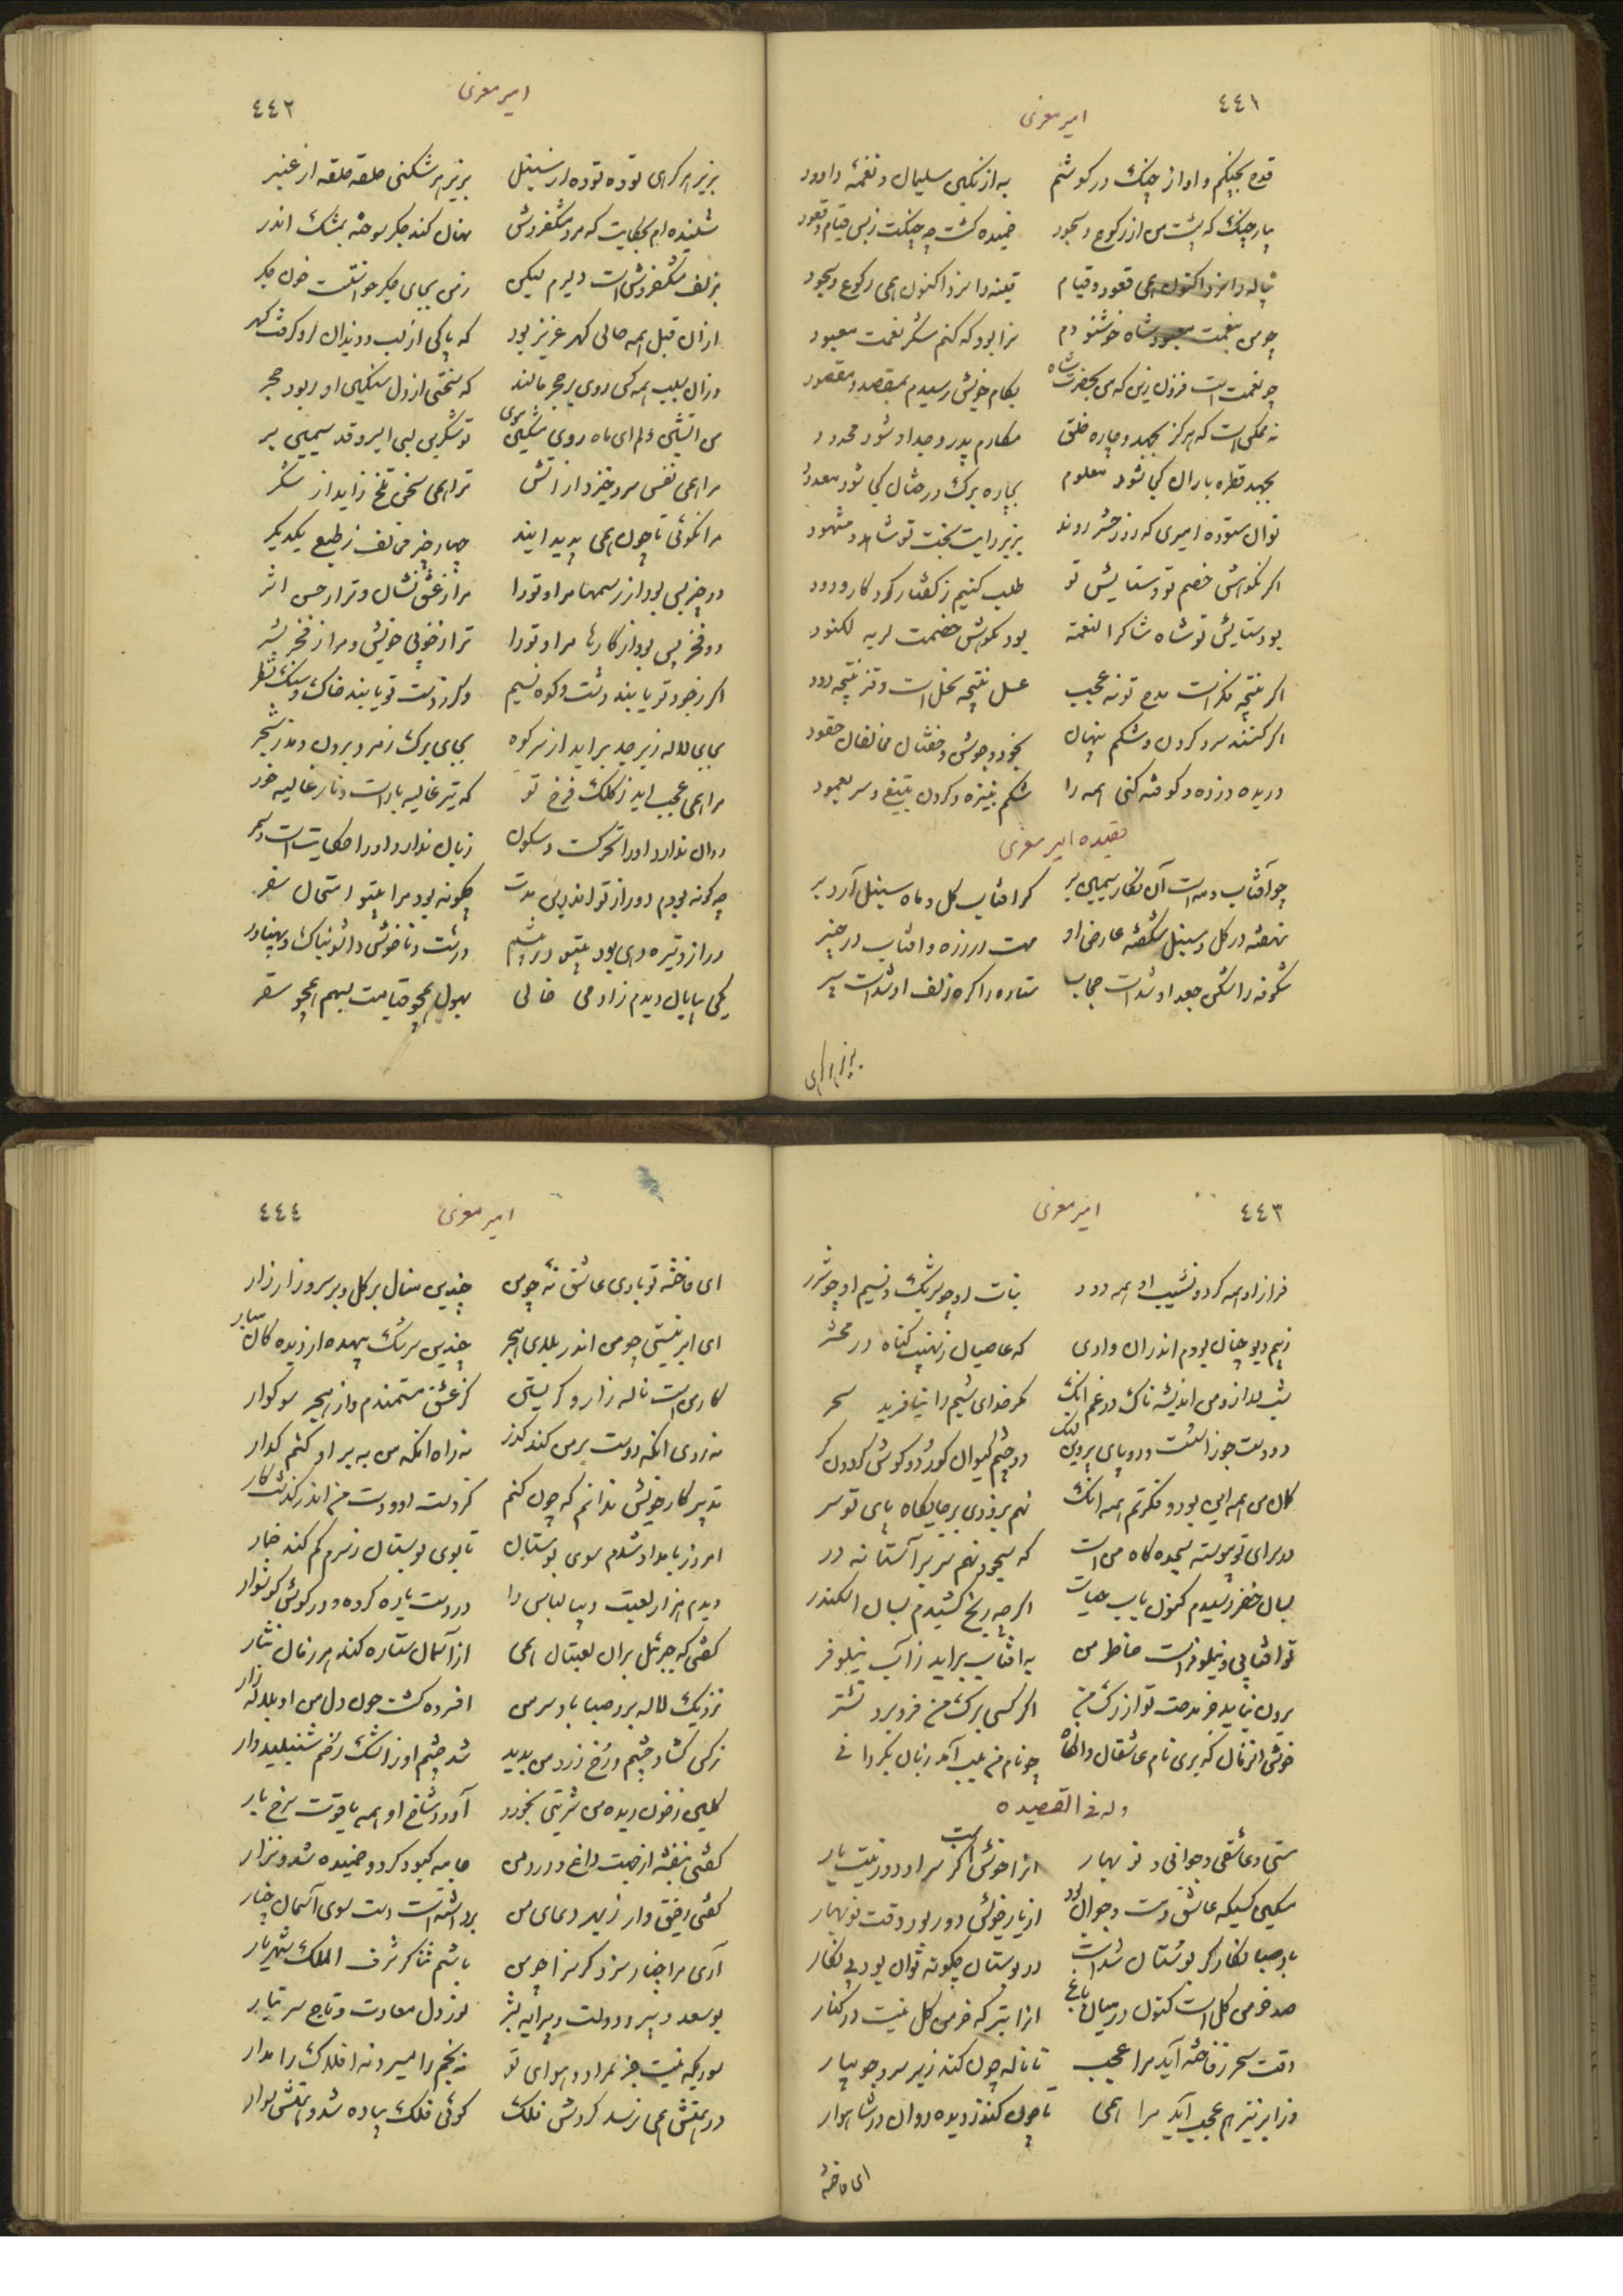 ٤٤١
امیر معزی
قدح بچنگم و اواز چنگ در کوشم به از نکین سلیمان و نغمهٔ داود
بیار چنگ که پشت من از رکوع و سجود خمیده کشت چه چنکت ز بس قیام و قعود
پیاله را سزد اکنون همی قعود و قیام قنینه را سزد اکنون همی رکوع و سجود
چو من بنعمت شاه خوشنودم سزا بود که کنم شکر نعمت معبود
چو نعمت است فزون زین که من بحضرت شاه بکام خویش رسیدم بمقصد و مقصود
نه ممکن است که هرکز بجهد و چاره خلق مکارم پدر و جد او شود محدود
بجهد قطره باران کی شود معلوم بچاره برک درختان کی شود معدود
توان ستوده امیری که روز حشر روند بزیر رایت بخت تو شاهد و مشهود
اکر نکوهش خصم تو و ستایش تو طلب کنیم ز کفتار کرد کار ودود
بود ستایش تو شاه شاکرا لنعمته بود نکوهش خصمت لربه لکنود
اکر نتیجه فکر است مدح تو نه عجب عسل نتیجه نحل است و قز نتیجه دود
اکر کنند سر و کردن و شکم پنهان بخود و جوشن و خفتان مخالفان حقود
دریده و زده و کوفته کنی همه را شکم بنیزه و کردن بتیغ و سر بعمود
قصیده امیر معزی
چو آفتاب و مه است آن نکار سیمین بر کر افتاب کل و ماه سنبل آرد بر
نهفته در کل و سنبل شکفته عارض او مه است در زره و افتاب در چنبر
شکوفه را شکن جعد او شداست حجاب ستاره را کره زلف او شداست سپر
بزیر هر کرهی
٤٤٢
امیر معزی
بزیر هر کرهی توده توده از سنبل بزیر هر شکنی حلقه حلقه از عنبر
شنیده ام بحکایت که مرد مشکفروش نهان کند جکر سوخته بمشک اندر
بزلف مشکفروش است دلبرم لیکن ز من بجای جکر خواستست خون جکر
ازان قبل همه حالی کهر عزیز بود که پاکی از لب و دندان او کرفت کهر
وزان سبب همه کس روی بر حجر مالند که سختی از دل سنکین او ربود حجر
من اتشین دلم ای ماه روی مشکین موی تو شکرین لبی ای سرو قد سیمین بر
مرا همی نفس سرد خیزد از اتش ترا همی سخن تلخ زاید از شکر
مرا نکوئی تا چون همی پدید ایند چهار چیز مخالف ز طبع یکدیکر
دو چیز بس بود از رسمها مرا و تورا مرا ز عشق نشان و ترا ز حسن اثر
دو فخر بس بود از کارها مرا و تورا ترا ز خوبی خویش و مرا ز فخر بشر
اکر ز جود تو یابند دشت و کوه نسیم وکر ز دست تو یابند خاک و سنک نظر
بجای لاله زبرجد براید از سر کوه بجای برک زمرد برون دمد ز شجر
مرا همی عجب اید ز کلک فرخ تو که تیر غالیه بار است و مار غالیه خور
روان ندارد اورا تحرکست و سکون زبان ندارد و اورا حکایت است و سمر
چه کونه بودم دور از تو اندرین مدت چکونه بود مرا بیتو امتحان سفر
دراز و تیره رهی بود بیتو در پیشم درشت و ناخوش و اشوبناک و پهناور
یکی بیابان دیدم ز ادمی خالی بهول همچو قیامت بسهم همچو سقر
٤٤٣
امیر معزی
فراز او همه کرد و نشیب او همه دود نبات او چو سرشک و نسیم او چو شرر
ز بیم دیو چنان بودم اندران وادی که عاصیان ز نهیب کناه در محشر
شب دراز و من اندیشه ناک در غم انک مکر خدای شبم را نیافرید سحر
دو دست جوزا شست و دو پای پروین لنک دو چشم کیوان کور و دو کوش کردون کر
کمان من همه این بود و فکرتم همه انک نهم بزودی بر جایکاه پای تو سر
در سرای تو پیوسته سجده کاه من است که سجود نهم سر بر آستانه در
بسان خضر رسیدم کنون باب حیات اکر چه رنج کشیدم بسان اسکندر
تو افتابی و نیلوفر است خاطر من به افتاب براید ز آب نیلوفر
برون نیاید جز مدحت تو از رک من اکر کسی برک من فرو برد نشتر
خوش انزمان که بری نام عاشقان وانکاه چو نام من بلب آمد زبان بکردانی
وله فی القصیده
مستی و عاشقی و جوانی و نو بهار انرا خوش است کر سر او دور نیست یار
مسکین کسیکه عاشق و مست و جوان بود از یار خویش دور بود وقت نوبهار
باد صبا نکار کر بوستان شداست در بوستان چکونه توان بود بی نکار
صد خرمن کل است کنون در میان باغ انرا بتر که خرمن کل نیست در کنار
وقت سحر ز فاخته آید مرا عجب تا ناله چون کند زبر سرو جویبار
وز ابر نیز هم عجب آید مرا همی تا چون کند ز دیده روان در شاهوار
ای فاخته
٤٤٤
امیر معزی
ای فاخته تو باری عاشق نهٔ چو من چندین منال بر کل و بر سرو زار زار
ای ابر نیستی چو من اندر بلای هجر چندین سرشک بیهده از دیده کان مبار
کار من است ناله زار و کریستن کز عشق مستمندم و از هجر سوکوار
نه روی انکه دوست بر من کند کذر نه راه انکه من به بر او کنم کذار
تدبیر کار خویش ندانم که چون کنم کز دست او و دست من اندر کذشت کار
امروز بامداد شدم سوی بوستان تا بوی بوستان ز سرم کم کند خمار
دیدم هزار لعبت دیبا لباس را در دست یاره کرده و در کوش کوشوار
کفتی که جبرئیل بران لعبتان همی از آسمان ستاره کند هر زمان نثار
نزدیک لاله برد صبا باد سرد من افسرده کشت خون دل من او بلاله زار
نرکس کشاد چشم و رخ زرد من بدید شد چشم او ز اشک رخم شنبلیدوار
کلبن ز خون دیده من شربتی بخورد آورد شاخ او همه یاقوت سرخ بار
کفتی بنفشه از جهت داغ و درد من جامه کبود کرد و خمیده شد و نزار
کفتی رفیق وار ز بهر دعای من برداشته است دست سوی آسمان چنار
آری مرا چنار سزد کر سزا چو من باشم ثناکر شرف الملک شهریار
بوسعد و دولت و پیرایه بشر نور دل سعادت و تاج سر تبار
صدریکه نیست جز بمراد و هوای تو نه نجم را مسیر و نه افلاک را مدار
در همتش همی نرسد کردش فلک کوئی فلک پیاده شد و همتش سوار